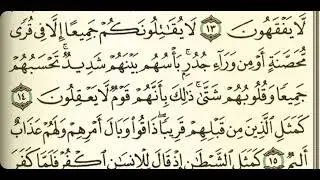 لَّا يَفْقَهُونَ ١٣ لَا يُقَٰتِلُونَكُمْ جَمِيعًا إِلَّا فِى قُرًى
مُّحَصَّنَةٍ أَوْ مِن وَرَآءِ جُدُرٍۭ ۚ بَأْسُهُم بَيْنَهُمْ شَدِيدٌ ۚ تَحْسَبُهُمْ
جَمِيعًا وَقُلُوبُهُمْ شَتَّىٰ ۚ ذَٰلِكَ بِأَنَّهُمْ قَوْمٌ لَّا يَعْقِلُونَ ١٤
كَمَثَلِ ٱلَّذِينَ مِن قَبْلِهِمْ قَرِيبًا ۖ ذَاقُوا۟ وَبَالَ أَمْرِهِمْ وَلَهُمْ عَذَابٌ
أَلِيمٌ ١٥ كَمَثَلِ ٱلشَّيْطَٰنِ إِذْ قَالَ لِلْإِنسَٰنِ ٱكْفُرْ فَلَمَّا كَفَرَ